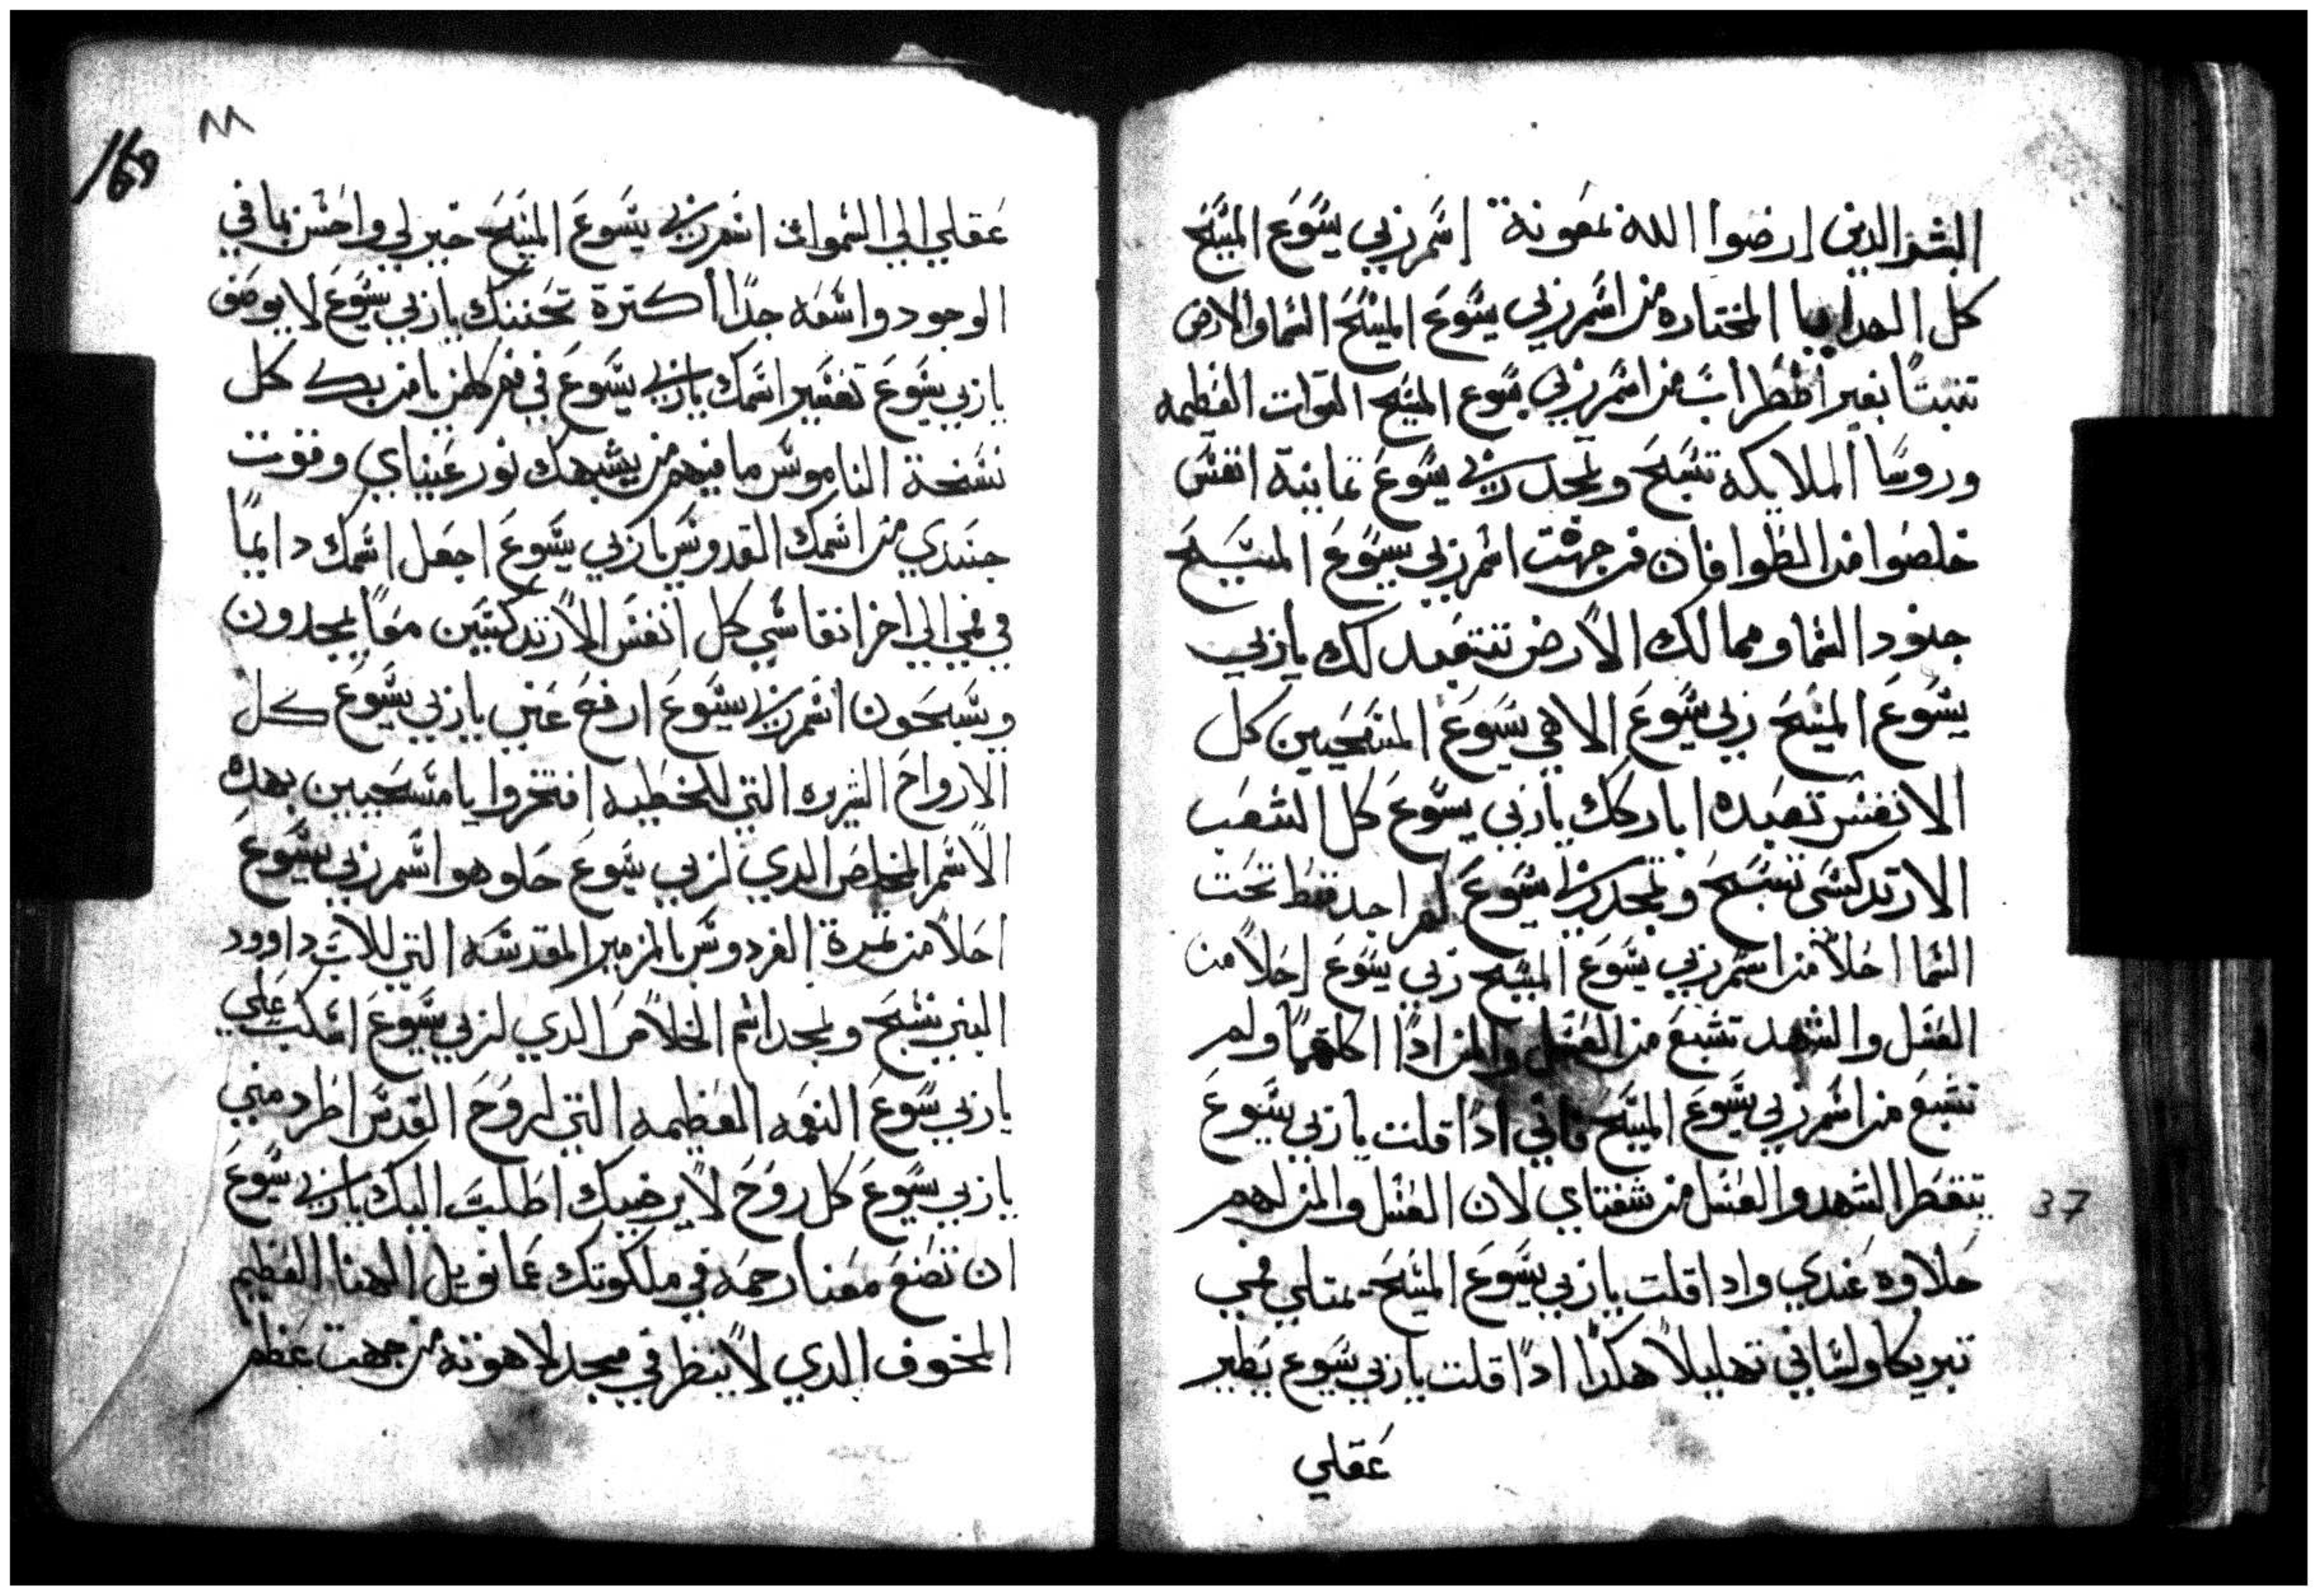 البشر الدين ارضوا الله بمعونة اسم ربي يسوع المسيح
كل الهدايا المختاره من اسم ربي يسوع المسيح السما والارض
تتبتا بغير اظطراب من اسم ربي يسوع المسيح القوات العظيمه
وروسا الملايكه تسبح وتمجد ربي يسوع تمانية انفس
خلصوا من الطوافان من جهت اسم ربي يسوع المسيح
جنود السما وممالك الارض تتعبد لك ياربي
يسوع المسيح ربي يسوع الاهي يسوع المسيحيين كل
الانفس تعبده اباركك ياربي يسوع كل الشعب
الارتدكسي تسبح وتمجد ربي يسوع لم اجد قط تحت
السما احلا من اسم ربي يسوع المسيح ربي يسوع احلا من
العسل والشهد تشبع من العسل والمن ادا اكلتهما ولم
تشبع من اسم ربي يسوع المسيح فاني ادا قلت ياربي يسوع
يتقطر الشهد والعسل من شفتاي لان العسل والمن لهم
حلاوه عندي وادا قلت ياربي يسوع المسيح يمتلي فمي
تبريكا ولساني تهليلا هكدا ادا قلت ياربي يسوع يطير
عقلي
37
٨٨
169
عقلي الي السموات اسم ربي يسوع المسيح خير لي واحسن بما في
الوجود واسعه جدا كترة تحننك ياربي يسوع لا يوصف
ياربي يسوع تفسير اسمك ياربي يسوع في فم كلمن يامن بك كل
نسخة الناموس ما فيهم من يشبهك نور عيناي وقوت
جسدي من اسمك القدوس ياربي يسوع اجعل اسمك دايما
في فمي الي اخر انفاسي كل انفس الارتدكسيين معا يمجدون
ويسبحون اسم ربي يسوع ارفع عني ياربي يسوع كل
الارواح الشريره التي للخطيه افتخروا يا مسيحيين بهده
الاسم المخلص الدي لربي يسوع حلو هو اسم ربي يسوع
احلا من تمرة الفردوس بالمزمير المقدسه التي للاب داوود
النبي نسبح ونمجد اسم الخلاص الدي لربي يسوع اسكب علي
ياربي يسوع النعمه العظيمه التي لروح القدس اطرد مني
ياربي يسوع كل روح لا يرضيك اطلب اليك ياربي يسوع
ان تضع معنا رحمه في ملكوتك عمانويل الهنا العظيم
المخوف الدي لا ينظر في مجد لاهوته من جهت عظم